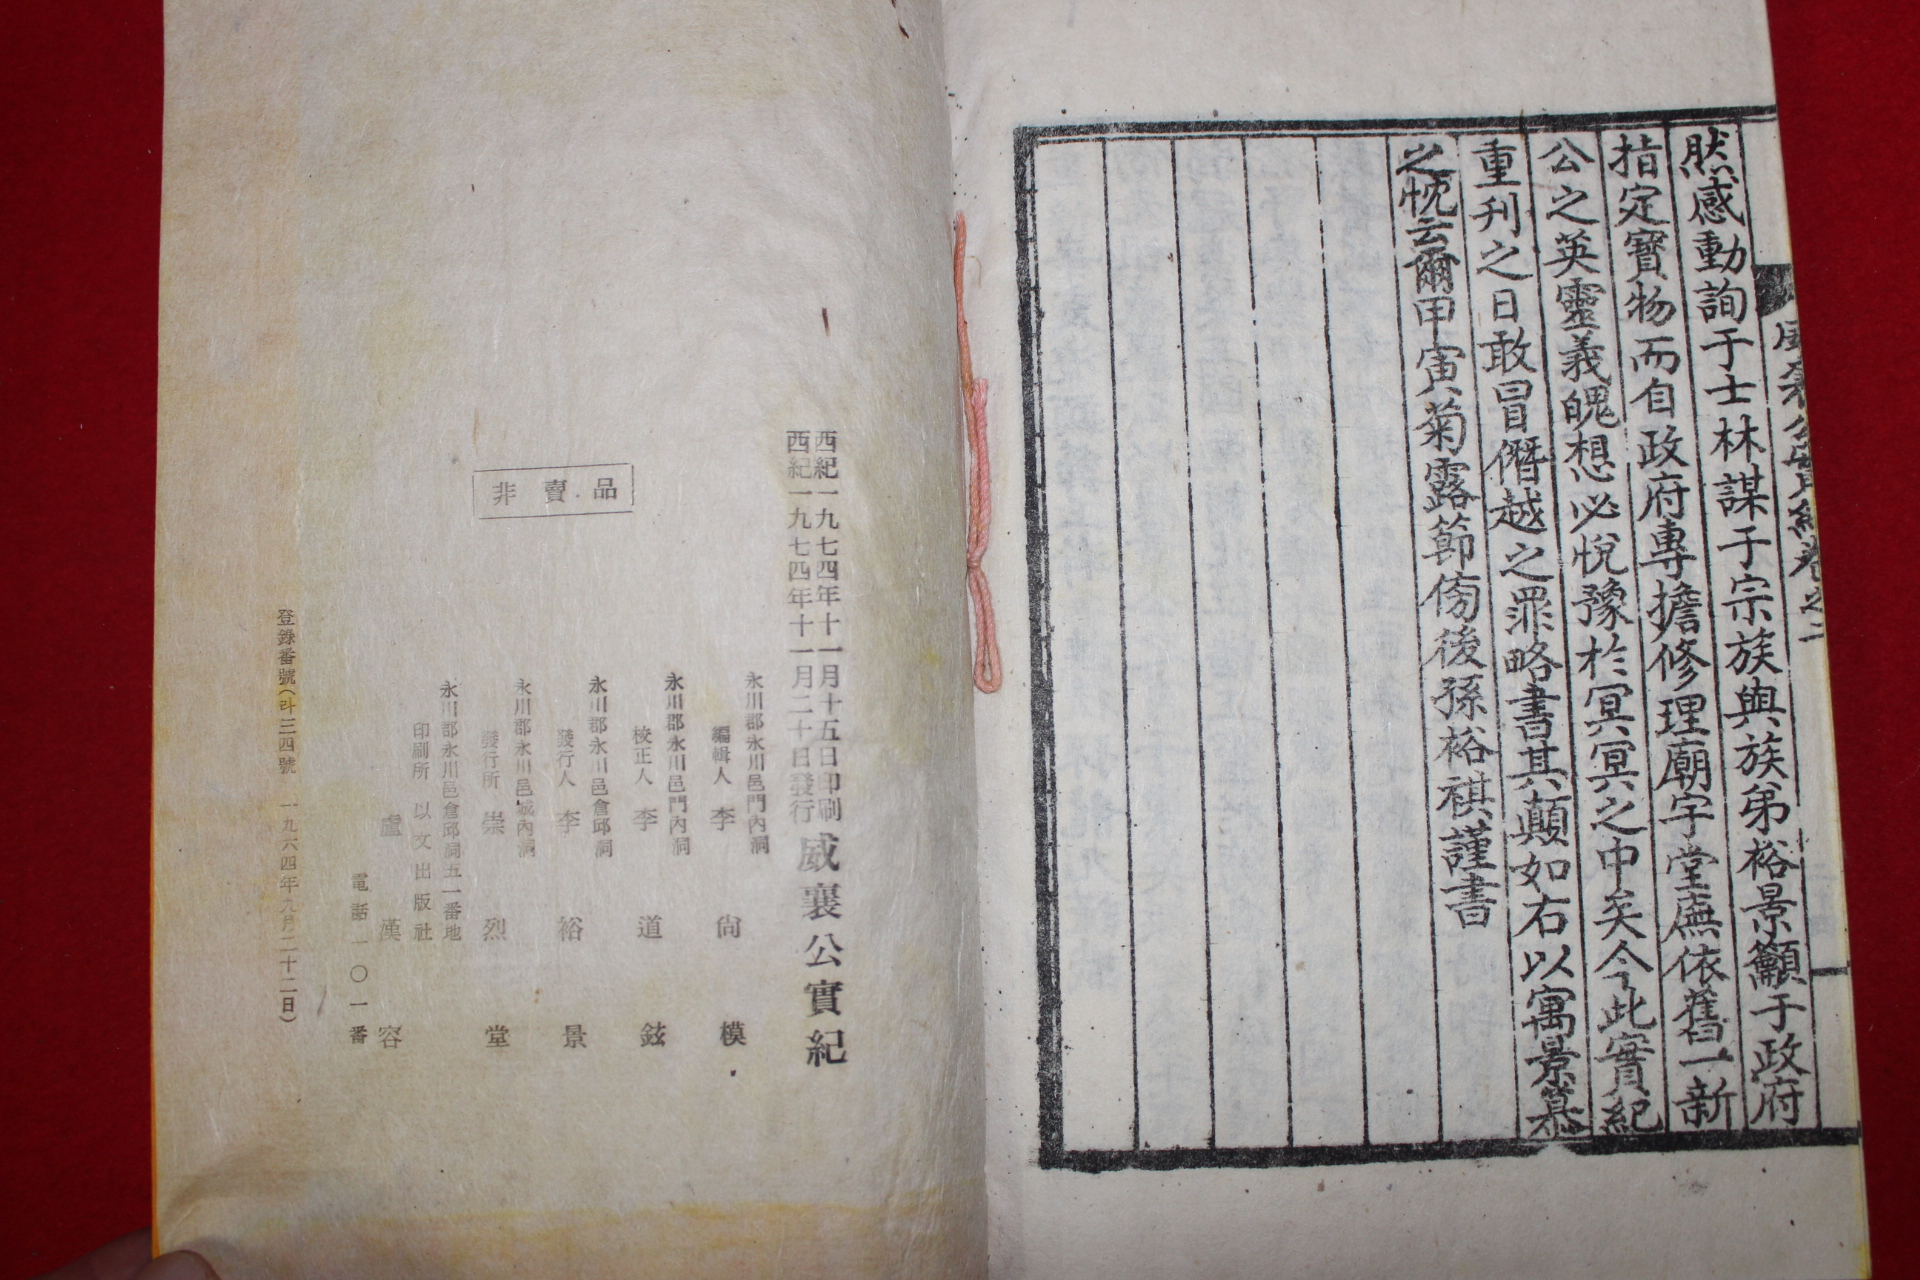 威襄公實紀卷之二
然感動詢于士林謀于宗族與族弟裕景籲于政府
指定寶物而自政府專擔修理廟宇堂廡依舊一新
公之英靈義魄想必悅豫於冥冥之中矣今此實紀
重刊之日敢冒僭越之罪略書其顛如右以寓景慕
之忱云爾甲寅菊露節傍後孫裕祺謹書
西紀一九七四年十一月十五日印刷
西紀一九七四年十一月二十日發行
威襄公實紀
永川郡永川邑門內洞
編輯人 李尙模
永川郡永川邑門內洞
校正人 李道鉉
永川郡永川邑倉邱洞
發行人 李裕景
永川郡永川邑城內洞
發行所 崇烈堂
非賣品
永川郡永川邑倉邱洞五一番地
印刷所 以文出版社
盧漢容
電話一〇一番
登錄番號(라三四號 一九六四年九月二十二日)